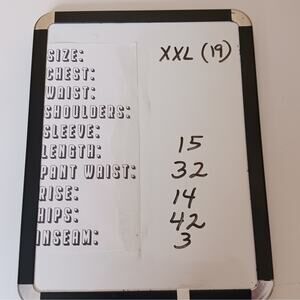 SIZE: XXL (19)
CHEST:
WAIST:
SHOULDERS:
SLEEVE:
LENGTH: 15
PANT WAIST: 32
RISE: 14
HIPS: 42
INSEAM: 3